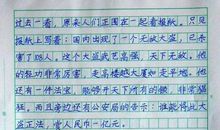 过去一看，原来人们正围在一起看报纸。只见
报纸上写着：国内出现了一个无敌大盗，已杀
害了18人，这个大盗武艺高强，天下无敌，他
的轻功非常厉害，走高楼越大厦如走平地。他
还有一件法宝，能够开天下所有的锁，非常猖
狂。而且旁边还有公安局的告示：谁能将此大
盗正法，赏人民币一亿元。